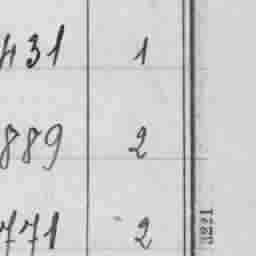 431 1
889 2
771 2